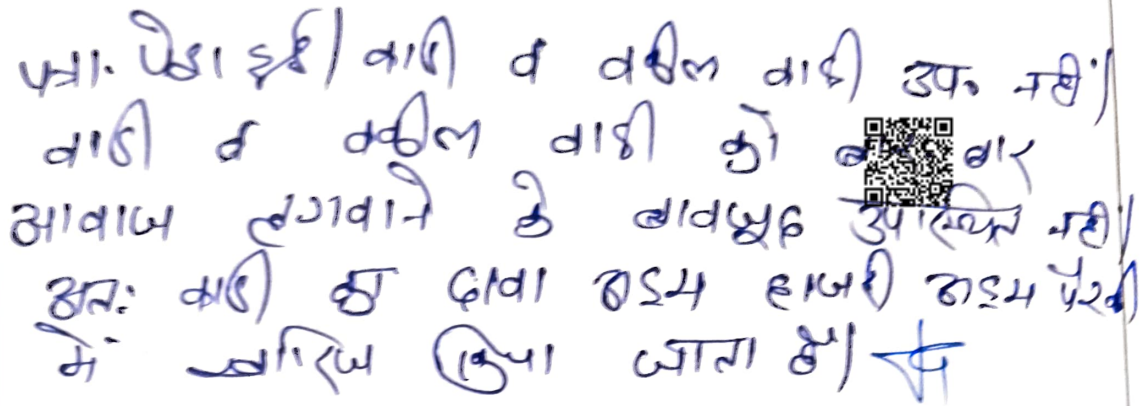 पत्रा. पेश हुई। वादी व वकील वादी उप. नहीं।
वादी व वकील वादी को बार
आवाज लगवाने के बावजूद उपस्थित नहीं।
अतः वादी का दावा अदम हाजरी अदम पैरवी
में खारिज किया जाता है।